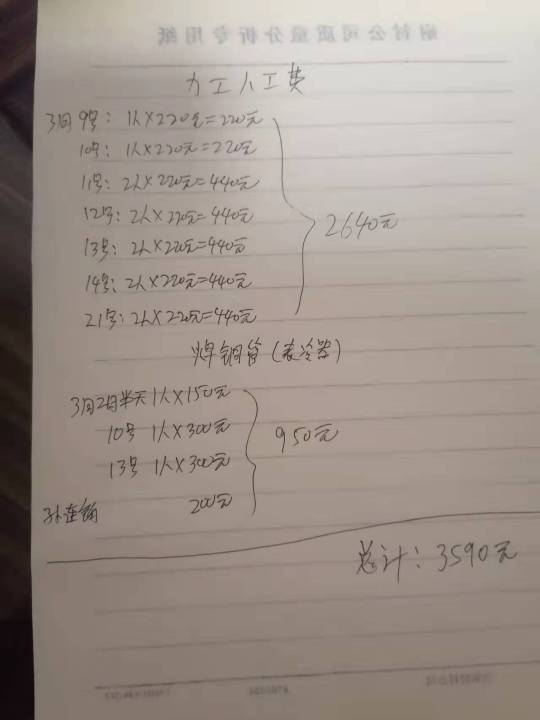 力工人工费
3月9号: 1人×220元=220元
10号: 1人×220元=220元
11号: 2人×220元=440元
12号: 2人×220元=440元
13号: 2人×220元=440元
14号: 2人×220元=440元
21号: 2人×220元=440元
2640元
焊铜管(表冷器)
3月2日半天 1人×150元
10号 1人×300元
13号 1人×300元
200元
950元
总计: 3590元